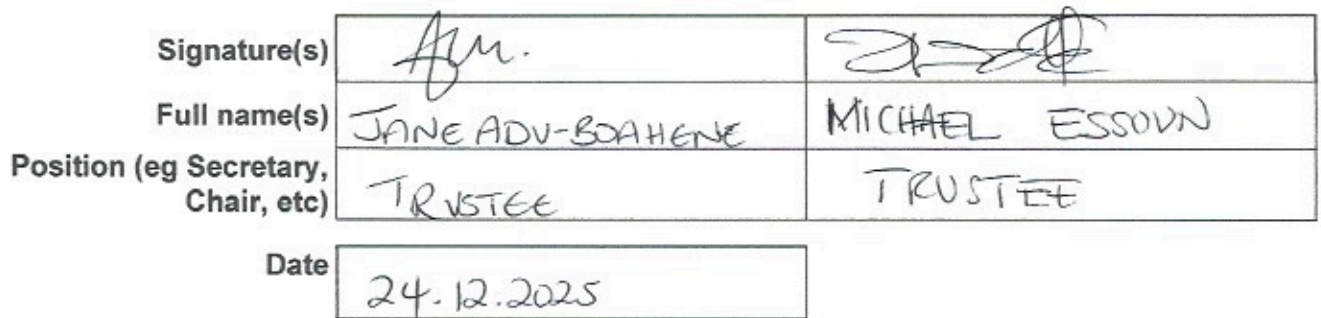 Signature(s)
Full name(s) JANE ADU-BOAHENE MICHAEL ESSOUN
Position (eg Secretary,
Chair, etc) TRUSTEE TRUSTEE
Date 24.12.2025